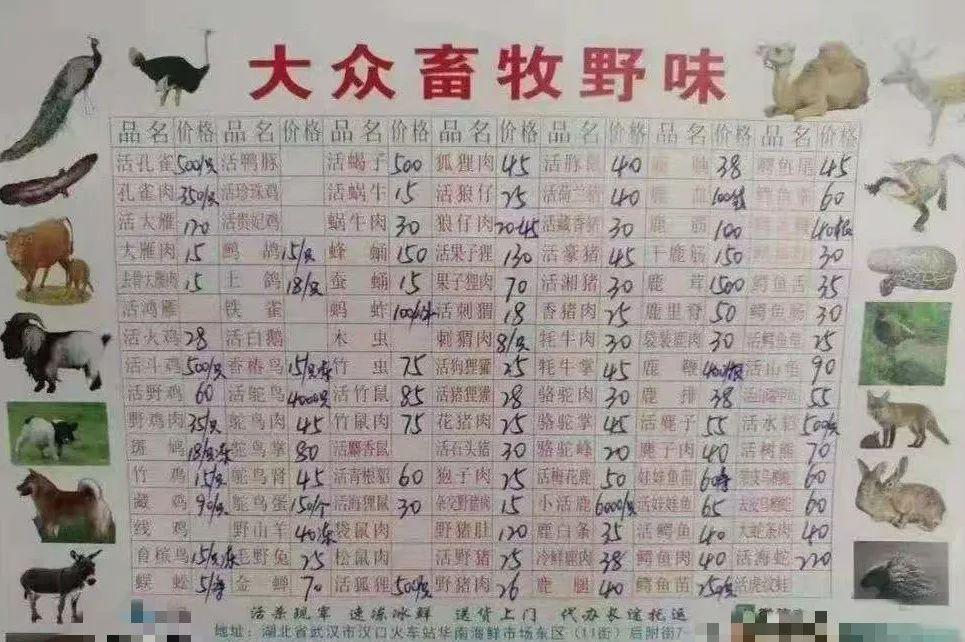 大众畜牧野味
品名 价格 品名 价格 品名 价格 品名 价格 品名 价格 品名 价格 品名 价格
活孔雀 500/只 活鸭豚 活蝎子 500 狐狸肉 45 活豚鼠 40 38 鳄鱼尾 45
孔雀肉 350/只 活珍珠鸡 活蜗牛 15 活狼仔 25 活荷兰猪 40 鹿血 60
活大雁 120 活贵妃鸡 蜗牛肉 30 狼仔肉 20-45 活藏香猪 30 鹿筋 100
大雁肉 15 鹧鸪 15/只 蜂蛹 150 活果子狸 130 活豪猪 45 干鹿筋 150 30
去骨大雁肉 15 土鸽 18/只 蚕蛹 果子狸肉 70 活湘猪 30 鹿茸 1500 鳄鱼舌 35
活鸿雁 铁雀 蚂蚱 活刺猬 18 香猪肉 25 鹿里脊 50 鳄鱼肠 30
活火鸡 28 活白鹅 木虫 刺猬肉 8/只 牦牛肉 30 袋装鹿肉 30 活鳄鱼龟 25
活斗鸡 500/只 香椿鸟 竹虫 75 活狗狸獾 25 牦牛掌 45 鹿鞭 活山龟 90
活野鸡 60 活鸵鸟 4000/只 活竹鼠 85 活猪狸獾 28 骆驼肉 30 鹿排 38 55
野鸡肉 35/只 鸵鸟肉 45 竹鼠肉 75 花猪肉 25 骆驼掌 45 活麂子 55 活水貂 500/只
斑鸠 鸵鸟掌 80 活麝香鼠 活石头猪 30 骆驼峰 20 麂子肉 40 活树熊 70
竹鸡 15/只 鸵鸟肾 45 活青根貂 60 狍子肉 25 活梅花鹿 50 娃娃鱼苗 60
藏鸡 90/只 鸵鸟蛋 150/个 活海狸鼠 30 杂交野猪肉 15 小活鹿 6000/只 活娃娃鱼 65 60
线鸡 野山羊 袋鼠肉 野猪肚 120 鹿白条 35 活鳄鱼 40 大蛇条肉 40
首槟鸟 毛野兔 25 松鼠肉 活野猪 25 冷鲜鹿肉 38 鳄鱼肉 40 活海蛇 220
蜈蚣 金蝉 70 活狐狸 500/只 野猪肉 26 鹿腿 40 鳄鱼苗 250/只 活虎纹蛙
活杀现宰 速冻冰鲜 送货上门 代办长途托运
地址：湖北省武汉市汉口火车站华南海鲜市场东区（11街）后附街7-